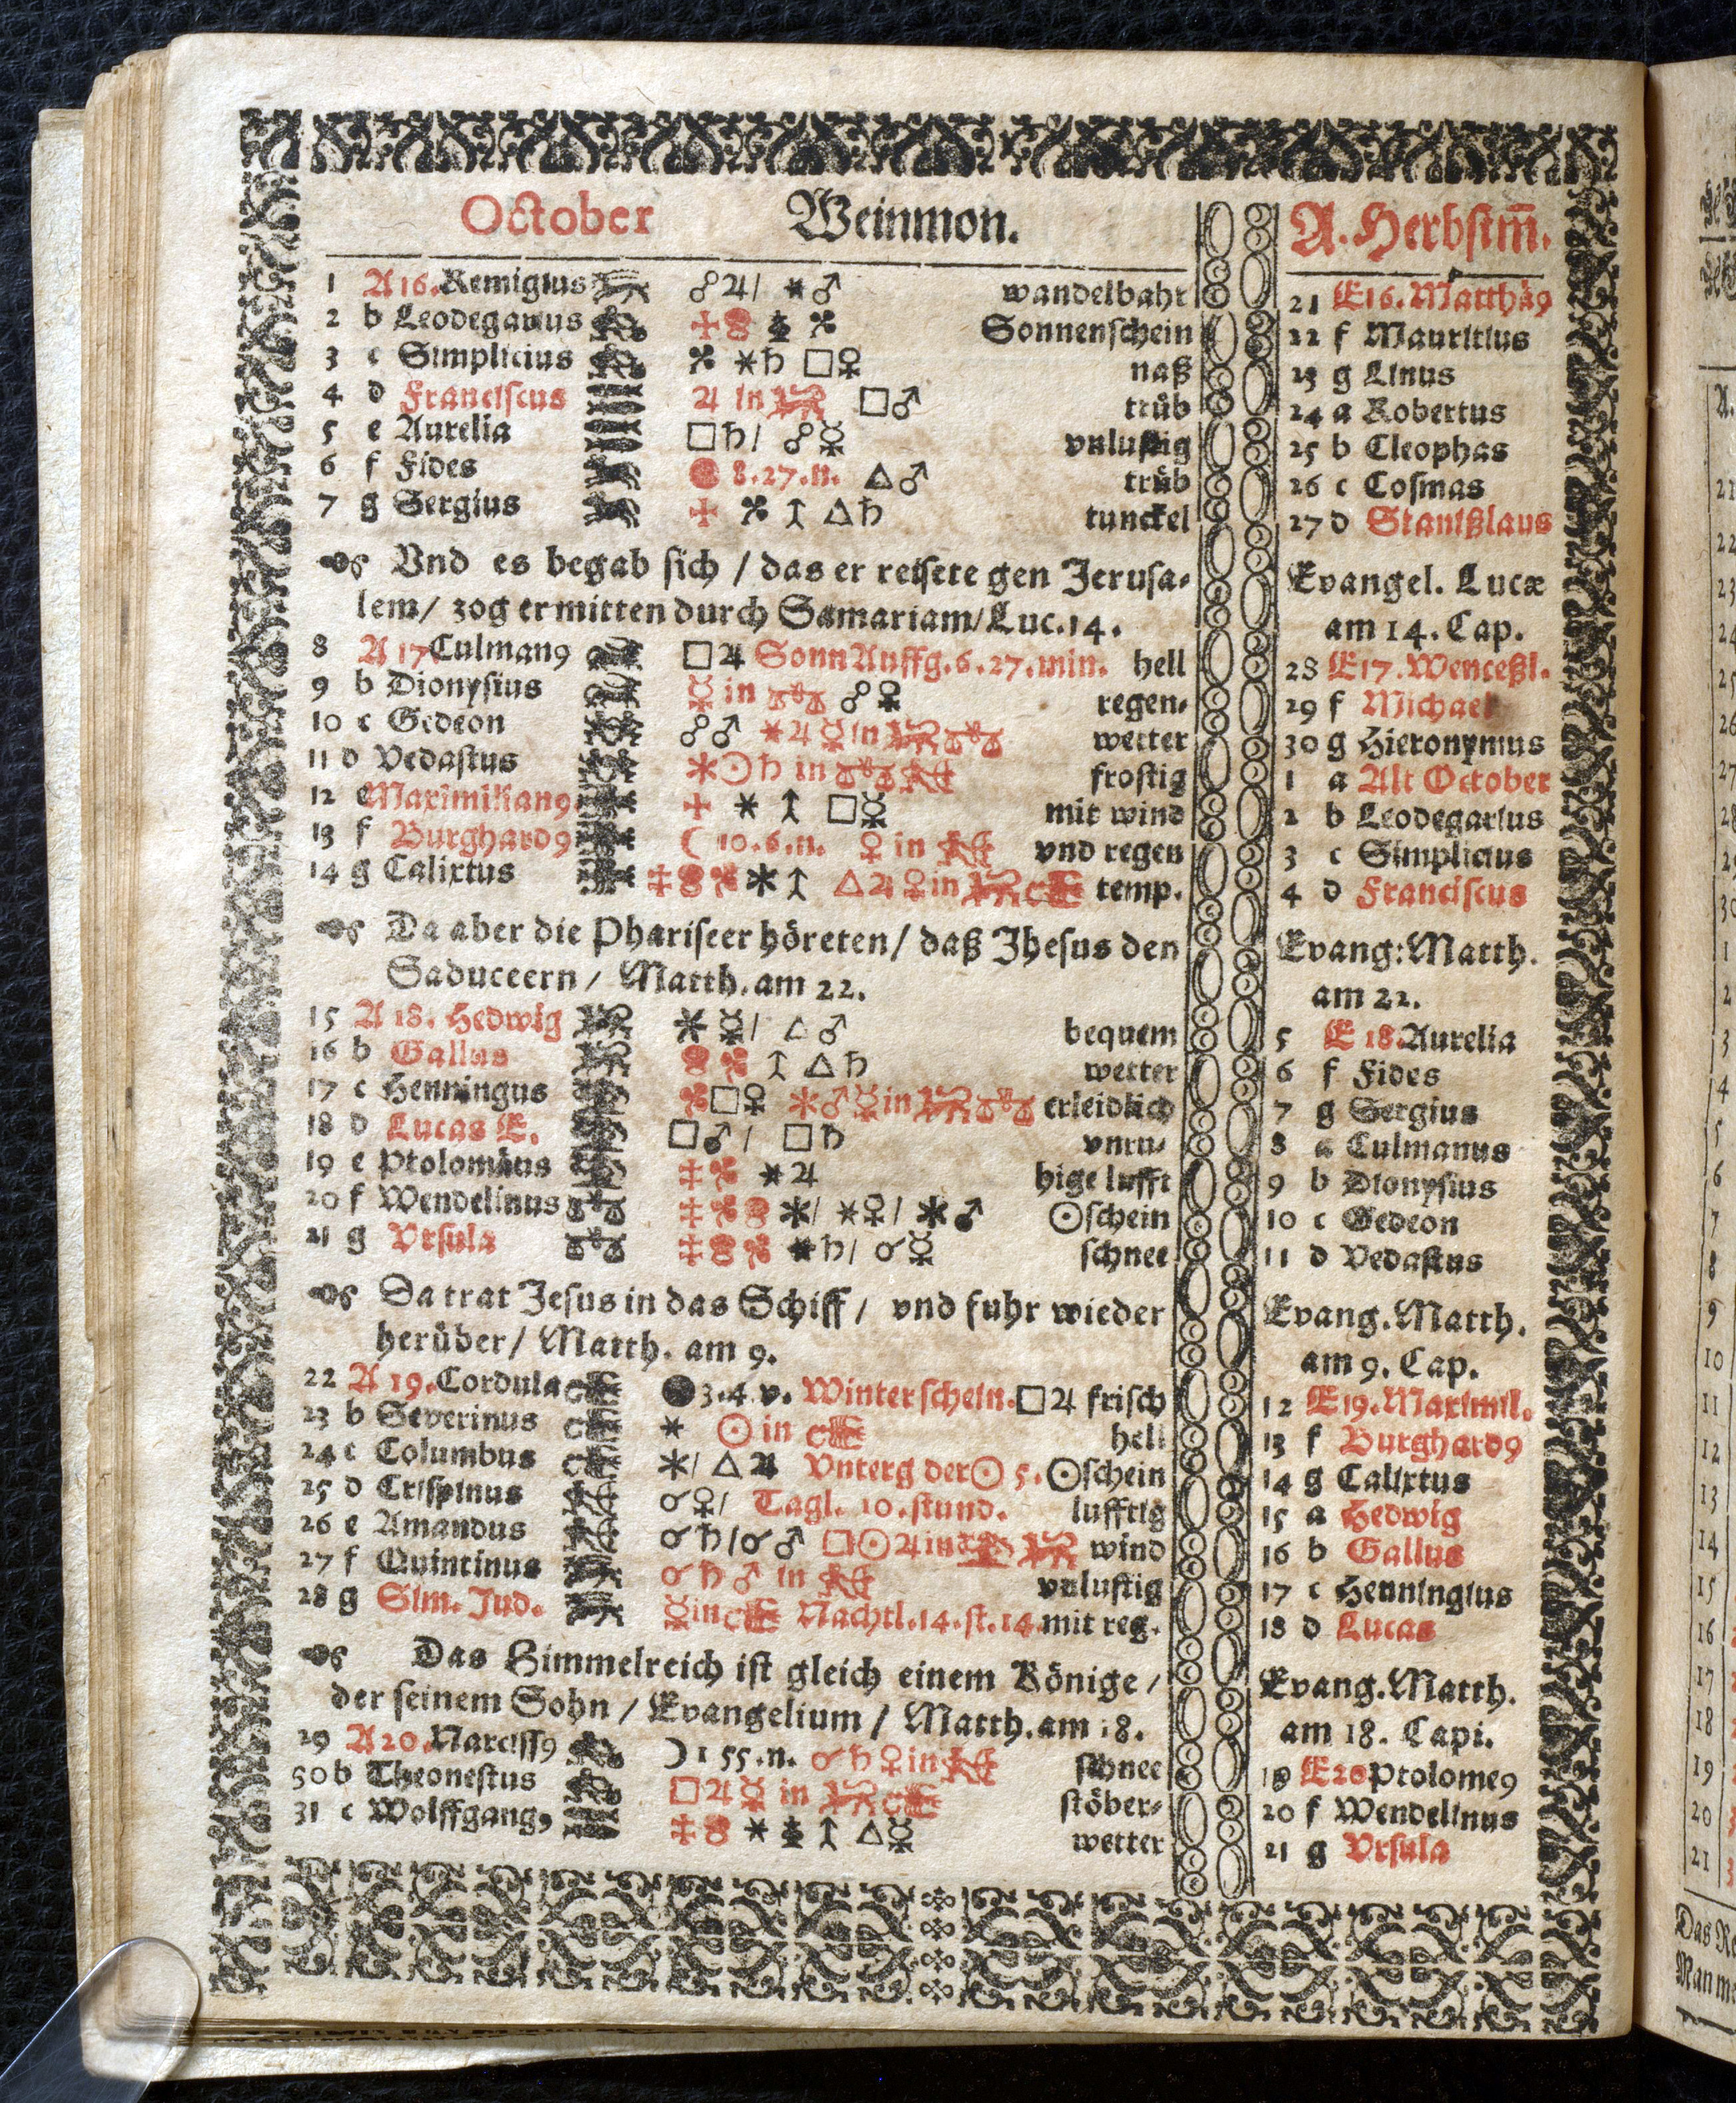 October Weinmon. A. Herbstm̃.
1 A 16. Remigius ☍♃/ ⚹♂ wandelbahr 21 E16. Matthæ9
2 b Leodegarius Sonnenschein 22 f Mauritius
3 c Simplicius ⚹♄ □♀ naß 23 g Linus
4 d Franciscus ♃ in □♂ trüb 24 a Robertus
5 e Aurelia □♄/ ☍☿ vnlustig 25 b Cleophas
6 f Fides 8.27.n. △♂ trüb 26 c Cosmas
7 g Sergius △♄ tunckel 27 d Stanißlaus
Vnd es begab sich / das er reisete gen Jerusa- Evangel. Lucæ
lem/ zog er mitten durch Samariam/Luc.14. am 14. Cap.
8 A 17 Culman9 □♃ Sonn Auffg. 6.27.min. hell 28 E17. Wenceßl.
9 b Dionysius ☿ in ☍♀ regen- 29 f Michael
10 c Gedeon ☍♂ ⚹♃☿in wetter 30 g Hieronymus
11 d Vedastus ⚹☉♄ in frostig 1 a Alt October
12 e Maximilian9 ⚹ □☿ mit wind 2 b Leodegarius
13 f Burghard9 ☾ 10.6.n. ♀ in vnd regen 3 c Simplicius
14 g Calixtus ⚹ △♃♀in temp. 4 d Franciscus
Da aber die Phariseer höreten/ daß Jhesus den Evang: Matth.
Saduceern / Matth. am 22. am 22.
15 A 18. Hedwig ⚹☿/ △♂ bequem 5 E 18. Aurelia
16 b Gallus △♄ wetter 6 f Fides
17 c Henningus □♀ ⚹♂☿in erleidlich 7 g Sergius
18 d Lucas E. □♂/ □♄ vnru- 8 a Culmanus
19 e Ptolomäus ⚹♃ hige lufft 9 b Dionysius
20 f Wendelinus ⚹/ ⚹♀/ ⚹♂ ☉schein 10 c Gedeon
21 g Vrsula ⚹♄/ ☌☿ schnee 11 d Vedastus
Da trat Jesus in das Schiff / vnd fuhr wieder Evang. Matth.
herüber/ Matth. am 9. am 9. Cap.
22 A 19. Cordula ●3.4.v. Winterschein. □♃ frisch 12 E19. Maximil.
23 b Severinus ⚹ ☉ in hell 13 f Burghard9
24 c Columbus ⚹/ △♃ Vnterg der☉ 5. ☉schein 14 g Calixtus
25 d Crispinus ☌♀/ Tagl. 10. stund. lufftig 15 a Hedwig
26 e Amandus ☌♄/☌♂ □☉♃in wind 16 b Gallus
27 f Quintinus ☌♄♂ in vnlustig 17 c Henningius
28 g Sim. Jud. ☿in Nachtl. 14. st. 14. mit reg. 18 d Lucas
Das Himmelreich ist gleich einem Könige / Evang. Matth.
der seinem Sohn / Evangelium / Matth. am 18. am 18. Capi.
29 A 20. Narciss9 ☽ 1 55.n. ☌♄♀in schnee 19 E20 Ptolome9
50 b Theonestus □♃☿ in stöber- 20 f Wendelinus
31 c Wolffgang9 ⚹ △☿ wetter 21 g Vrsula